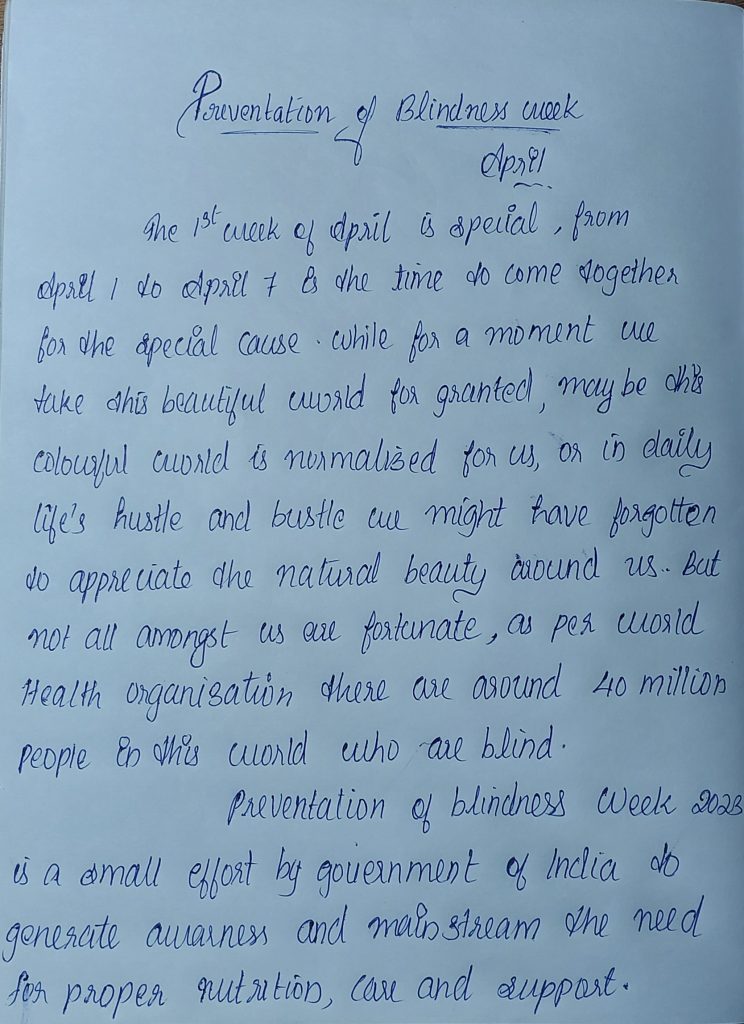 Preventation of Blindness week
April
The 1st week of April is special, from
April 1 to April 7 is the time to come together
for the special cause. While for a moment we
take this beautiful world for granted, may be this
colourful world is normalised for us, or in daily
life's hustle and bustle we might have forgotten
to appreciate the natural beauty around us.. But
not all amongst us are fortunate, as per world
Health organisation there are around 40 million
people in this world who are blind.
Preventation of blindness Week 2023
is a small effort by government of India to
generate awarness and mainstream the need
for proper nutrition, care and support.